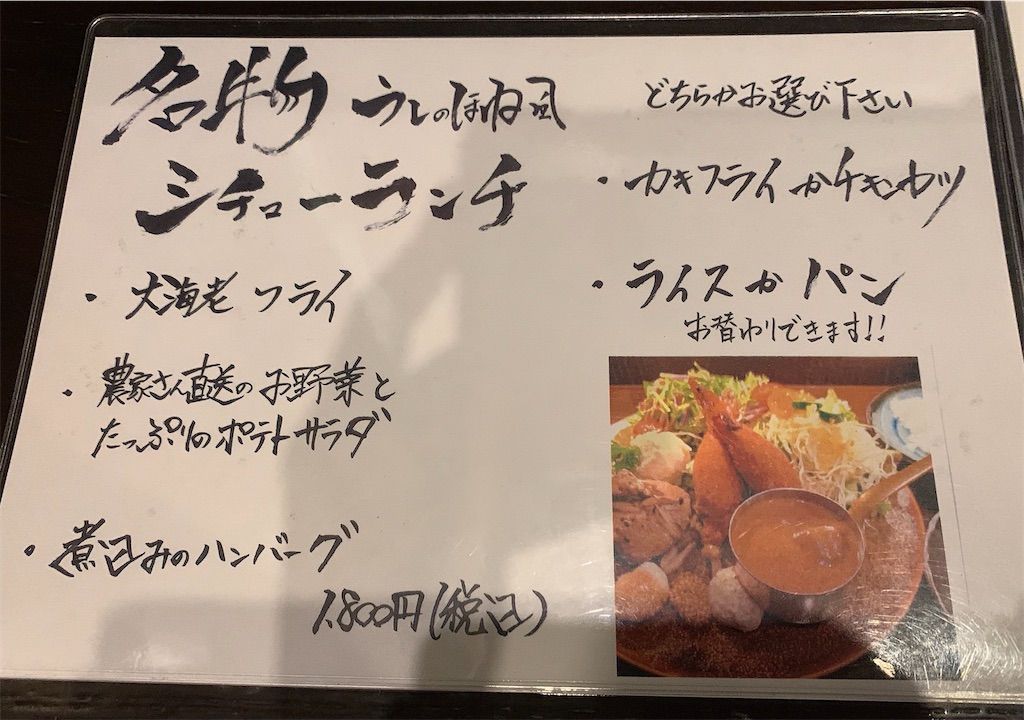 名物 うしのほね風
シチューランチ
・大海老フライ
・農家さん直送のお野菜と
たっぷりのポテトサラダ
・煮込みのハンバーグ
1,800円(税込)
どちらかお選び下さい
・カキフライかチキンカツ
・ライスかパン
お替わりできます!!